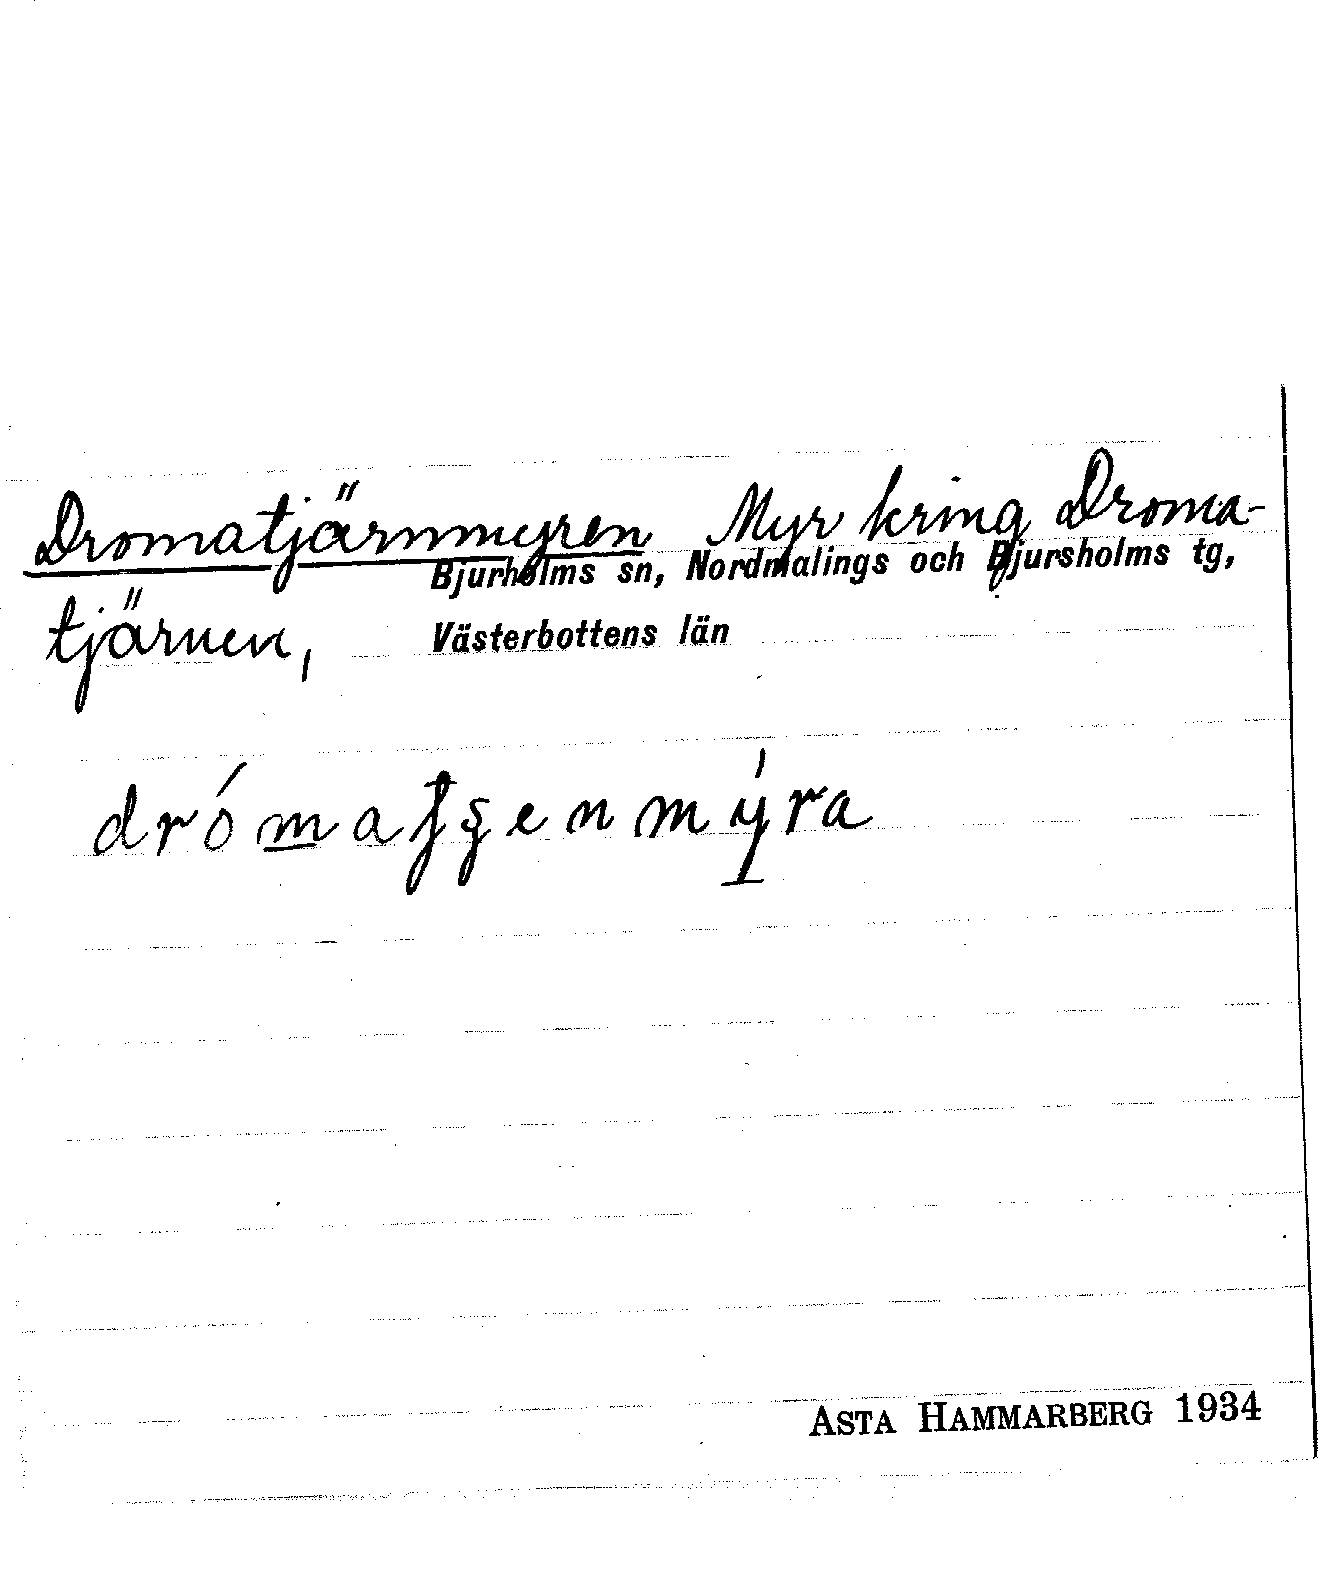 Dromatjärnmyren Myr kring Droma-
Bjurholms sn, Nordmalings och Bjursholms tg,
tjärnen,
Västerbottens län
ASTA HAMMARBERG 1934